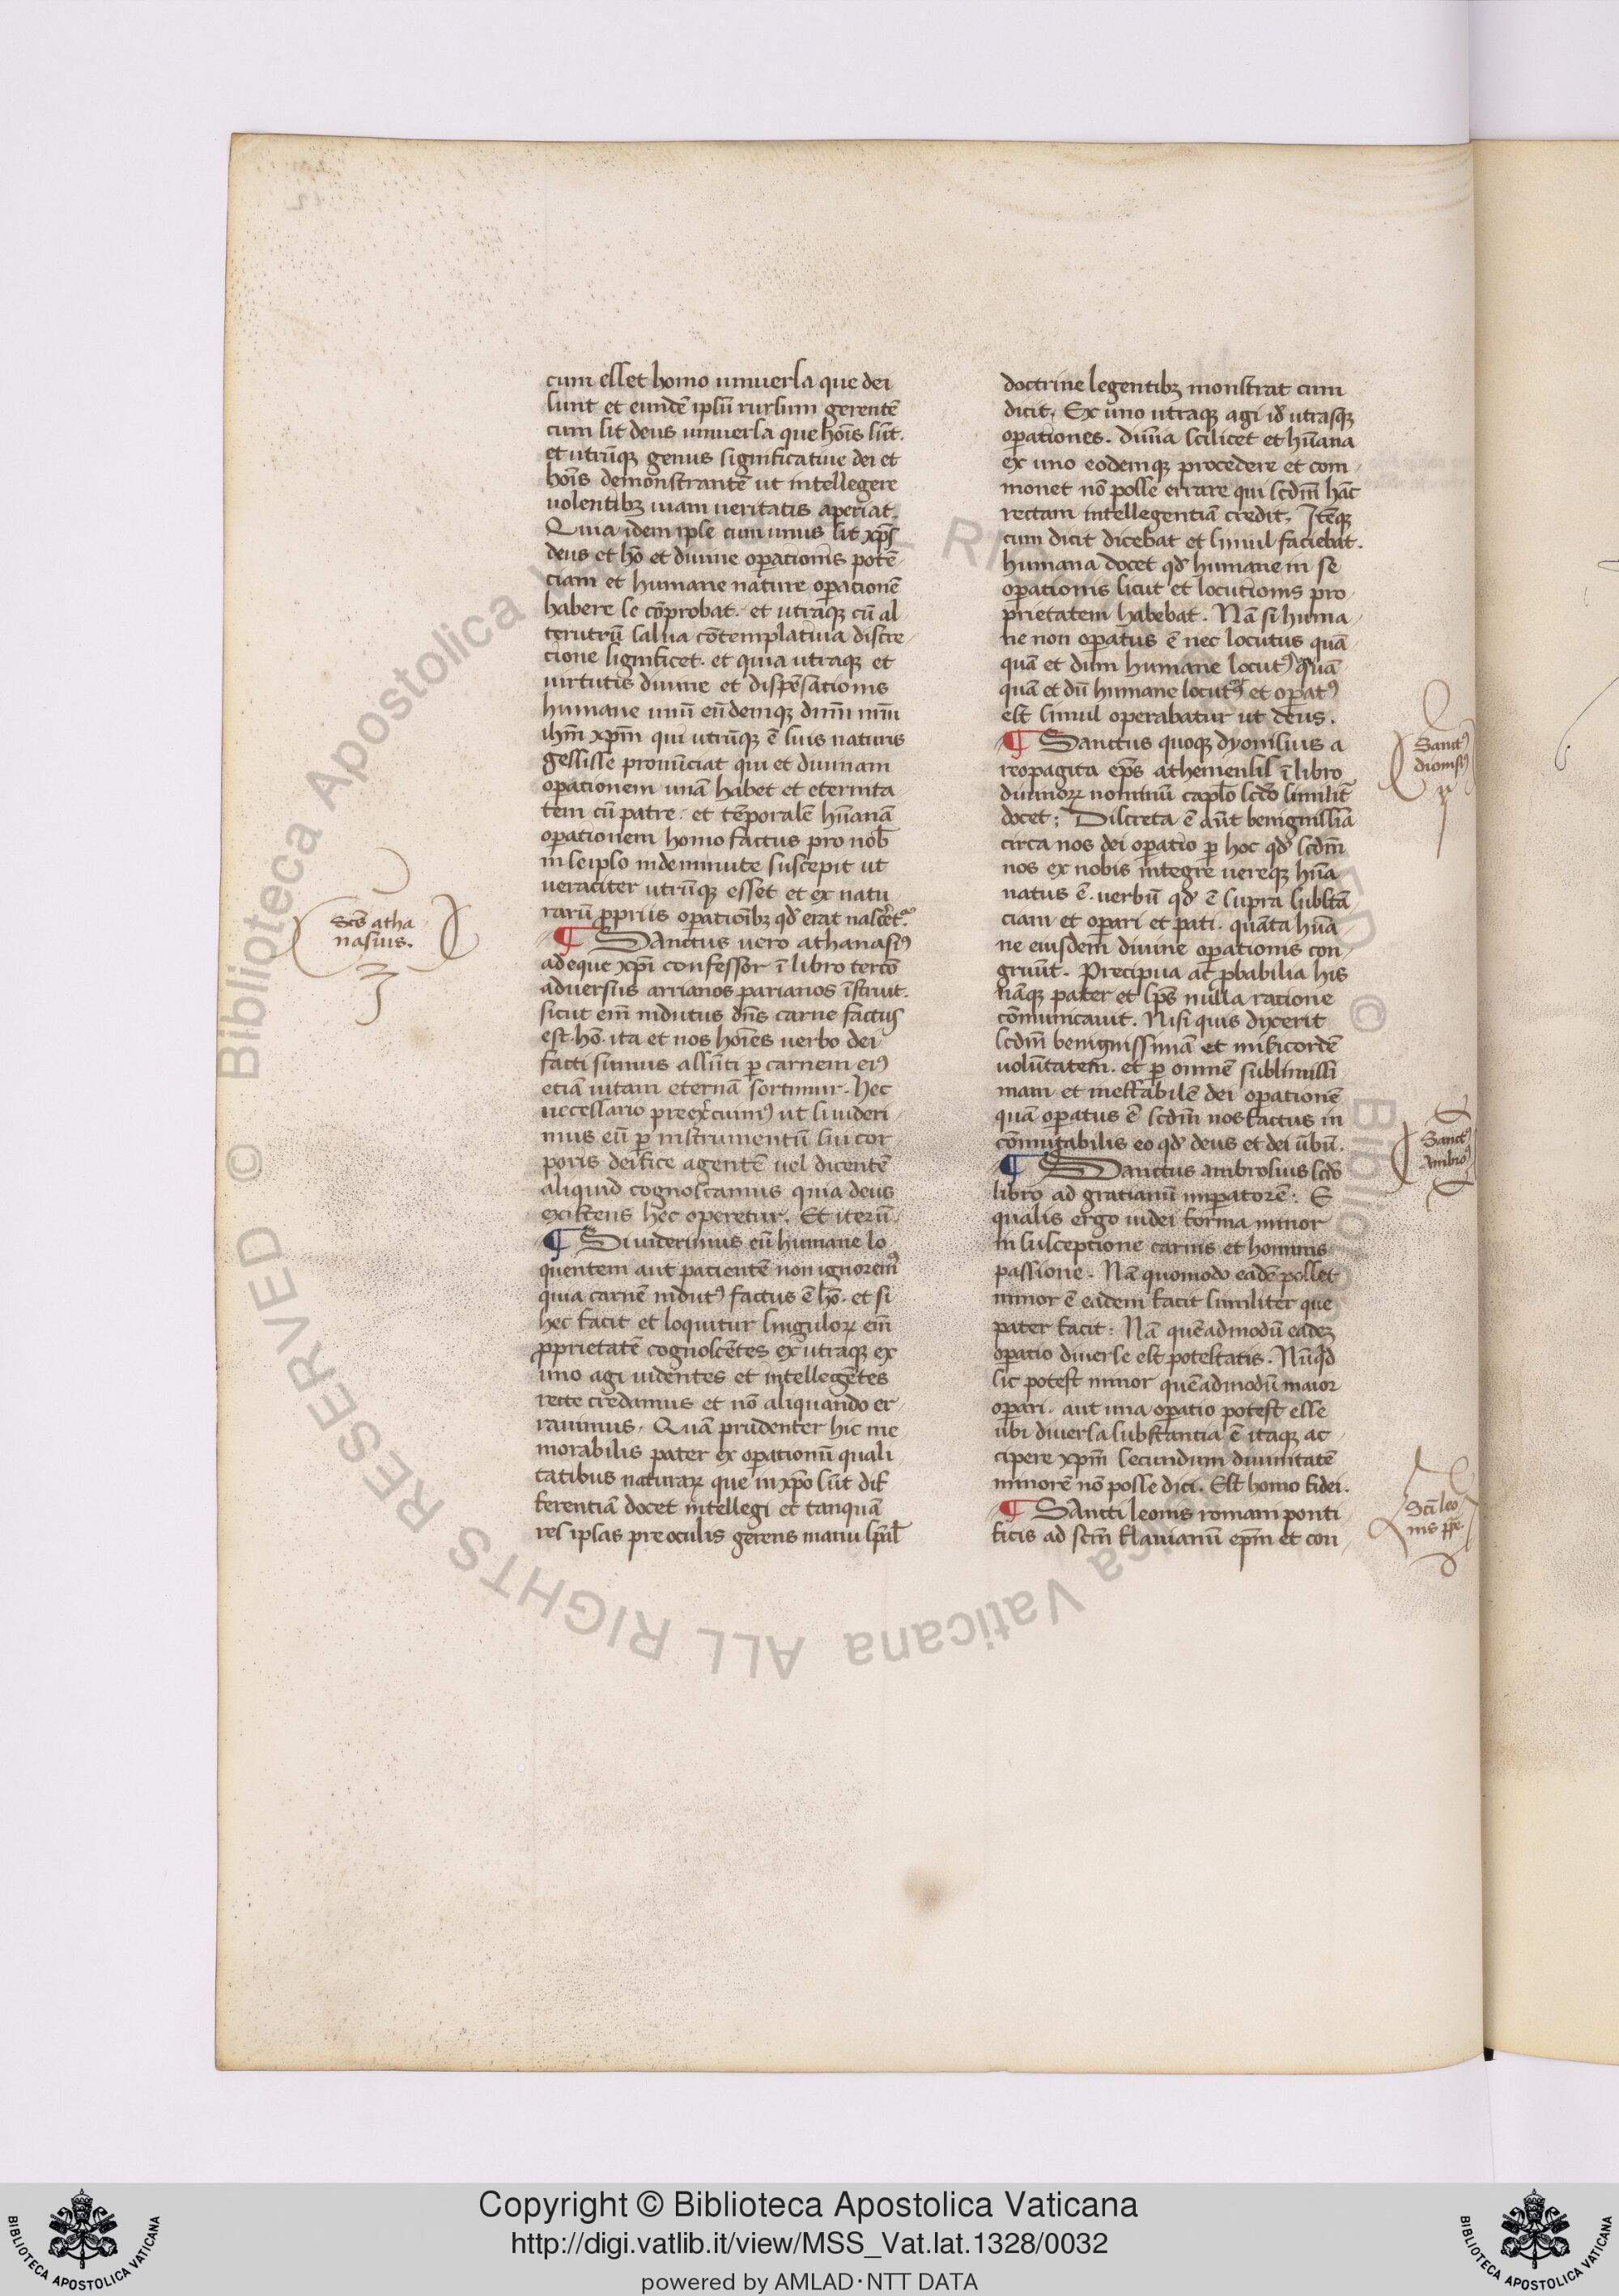 cum esset homo uniuersa que dei
sunt et eundē ipsū rursum gerentē
cum sit deus uniuersa que hoīs sūt.
et utrūqꝫ genus significatiue dei et
hoīs demonstrantē ut intellegere
uolentibꝫ uiam ueritatis aperiat.
Quia idem ipse cum unus sit xp̄s
deus et hō et diuine oꝑationis potē
ciam et humane nature oꝑationē
habere se cōprobat. et utraqꝫ cū al
terutrū salua cōtemplatiua discre
cione significet. et quia utraqꝫ et
uirtutis diuine et dispēsationis
humane unū eūdemqꝫ dnm̄ nrm̄
ihm̄ xpm̄ qui utrūqꝫ ē suis naturis
gessisse pronūciat qui et diuinam
oꝑationem unā habet et eternita
tem cū patre. et tēporalē hūanā
oꝑationem homo factus pro nob̄
in seipso indeminute suscepit ut
ueraciter utrūqꝫ esset et ex natu
rarū ꝓpriis oꝑationibꝫ qd̄ erat nascēt᷑.
¶ Sanctus uero athanasiꝰ
adeque xp̄i confessor ī libro tercō
aduersus arrianos parianos īstruit.
sicut em̄ indutus dn̄s carne factus
est. hō. ita et nos hoīes uerbo dei
facti sumus assūti ꝑ carnem eiꝰ
etiā uitam eternā sortimur. hec
necessario preexcuimꝰ ut si uideri
mus eū ꝑ instrumentū sui cor
poris deifice agentē uel dicentē
aliquid cognoscamus quia deus
existens hec operetur. Et iterū.
¶ Si uiderimus eū humane lo
quentem aut pacientē non ignoremꝰ
quia carnē indutꝰ factus ē hō. et si
hec facit et loquitur singuloꝝ em̄
ꝓprietatē cognoscētes ex utraqꝫ ex
uno agi uidentes et intellegētes
recte credamus et nō aliquando er
rauimus. Quā prudenter hic me
morabilis pater ex oꝑationū quali
tatibus naturaꝝ que in xp̄o sūt dif
ferentiā docet intellegi et tanquā
res ipsas pre oculis gerens manu sp̄ial̄
doctrine legentibꝫ monstrat cum
dicit. Ex uno utraqꝫ agi id̄ utrasqꝫ
oꝑationes. diuīa scilicet et hūana
ex uno eodemqꝫ procedere et com
monet nō posse errare qui scdm̄ hāc
rectam intellegentiā credit. Itēqꝫ
cum dicit dicebat et simul faciebat.
humana docet qd̄ humane in se
oꝑationis sicut et locutionis pro
prietatem habebat. Nā si huma
ne non oꝑatus ē nec locutus quā
quā et dum humane locutꝰ quā
quā et dū humane locutꝰ et oꝑatꝰ
est simul operabatur ut deus.
¶ Sanctus quoqꝫ dyonisius a
reopagita ep̄s atheniensis ī libro
diuinoꝝ nominū capl̄o scdō similit᷑
docet; Discreta ē aūt benignissīa
circa nos dei oꝑatio ꝑ hoc qd̄ scdm̄
nos ex nobis integre uereqꝫ hūa
natus ē. uerbū qd̄ ē supra substā
ciam et oꝑari et pati. quāta hūa
ne eiusdem diuine oꝑationis con
gruūt. Precipua ac ꝓbabilia his
nāqꝫ pater et sp̄s nulla ratione
cōmunicauit. Nisi quis dixerit
scdm̄ benignissimā et misicordē
uolūtatem. et ꝑ omnē sublimissi
mam et ineffabilē dei oꝑationē
quā oꝑatus ē scdm̄ nos factus in
cōmutabilis eo qd̄ deus et dei ūbū.
¶ Sanctus ambrosius scdō
libro ad gratianū imꝑatorē: E
qualis ergo uidei forma minor
in susceptione carnis et hominis
passione. Nā quomodo eadē posset
minor ē eadem facit similiter que
pater facit: Nā quēadmodū eadeꝫ
oꝑatio diuerse est potestatis. Nūqd̄
sic potest minor quēadmodū maior
oꝑari. aut una oꝑatio potest esse
ubi diuersa substantia ē itaqꝫ ac
cipere xpm̄ secundum diuinitatē
minorē nō posse dici. Est homo fidei.
¶ Sancti leonis romani ponti
ficis ad sctm̄ flauianū epm̄ et con
Scs̄ atha
nasius.
Sanctꝰ
dionisiꝰ
Sanctꝰ
Ambroꝰ
Scī leo
nis pp̄e
Copyright © Biblioteca Apostolica Vaticana
http://digi.vatlib.it/view/MSS_Vat.lat.1328/0032
powered by AMLAD·NTT DATA
BIBLIOTECA APOSTOLICA VATICANA
BIBLIOTECA APOSTOLICA VATICANA
© Biblioteca Apostolica Vaticana ALL RIGHTS RESERVED